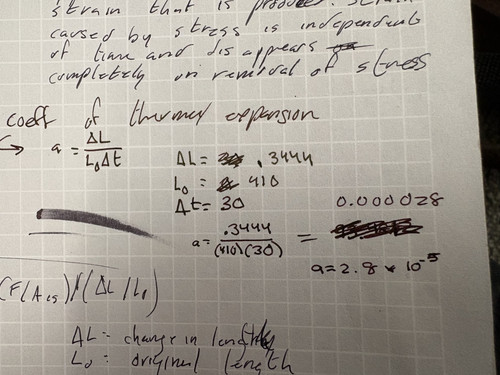 strain that is produced. Strain
caused by stress is independent
of time and disappears
completely on removal of stress
coeff of thermal expansion
→ a = ΔL / L₀Δt
ΔL = .3444
L₀ = 410
Δt = 30
a = .3444 / (410)(30) = 0.000028
a = 2.8 × 10⁻⁵
(F/A cs)/(ΔL/L₀)
ΔL = change in length
L₀ = original length